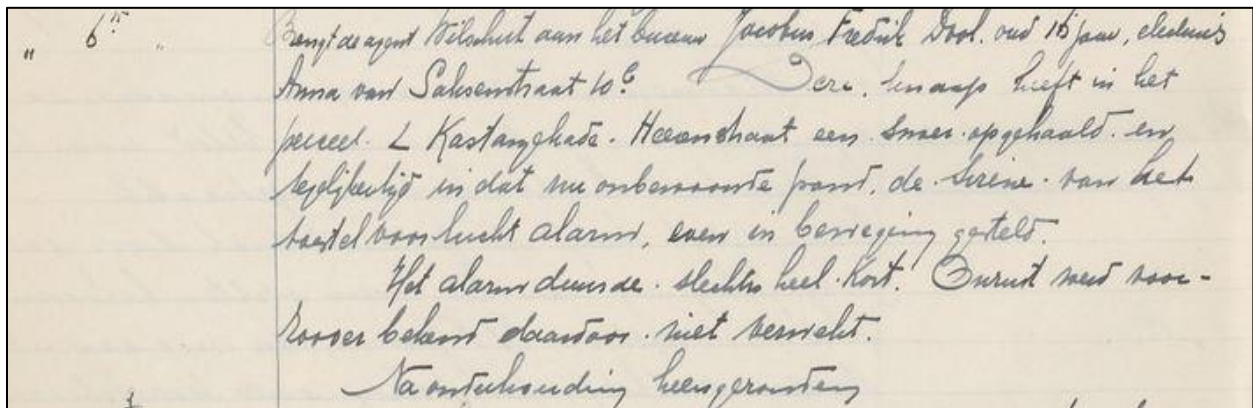 " 6 "
Brengt de agent Wilschut aan het bureau Jacobus Fredrik Dool. oud 15 jaar, electricis
Anna van Saksenstraat 10c Deze, knaap heeft in het
perceel. L Kastanjekade. Hoornstraat een snoer. opgehaald. en,
tegelijkertijd in dat nu onbewoonde pand, de sirene. van het
toestel voor lucht alarm, even in beweging gesteld.
Het alarm duurde. slechts heel. kort. Onrust werd voor-
zoover bekend daardoor. niet verwekt.
Na onderhouding heengezonden